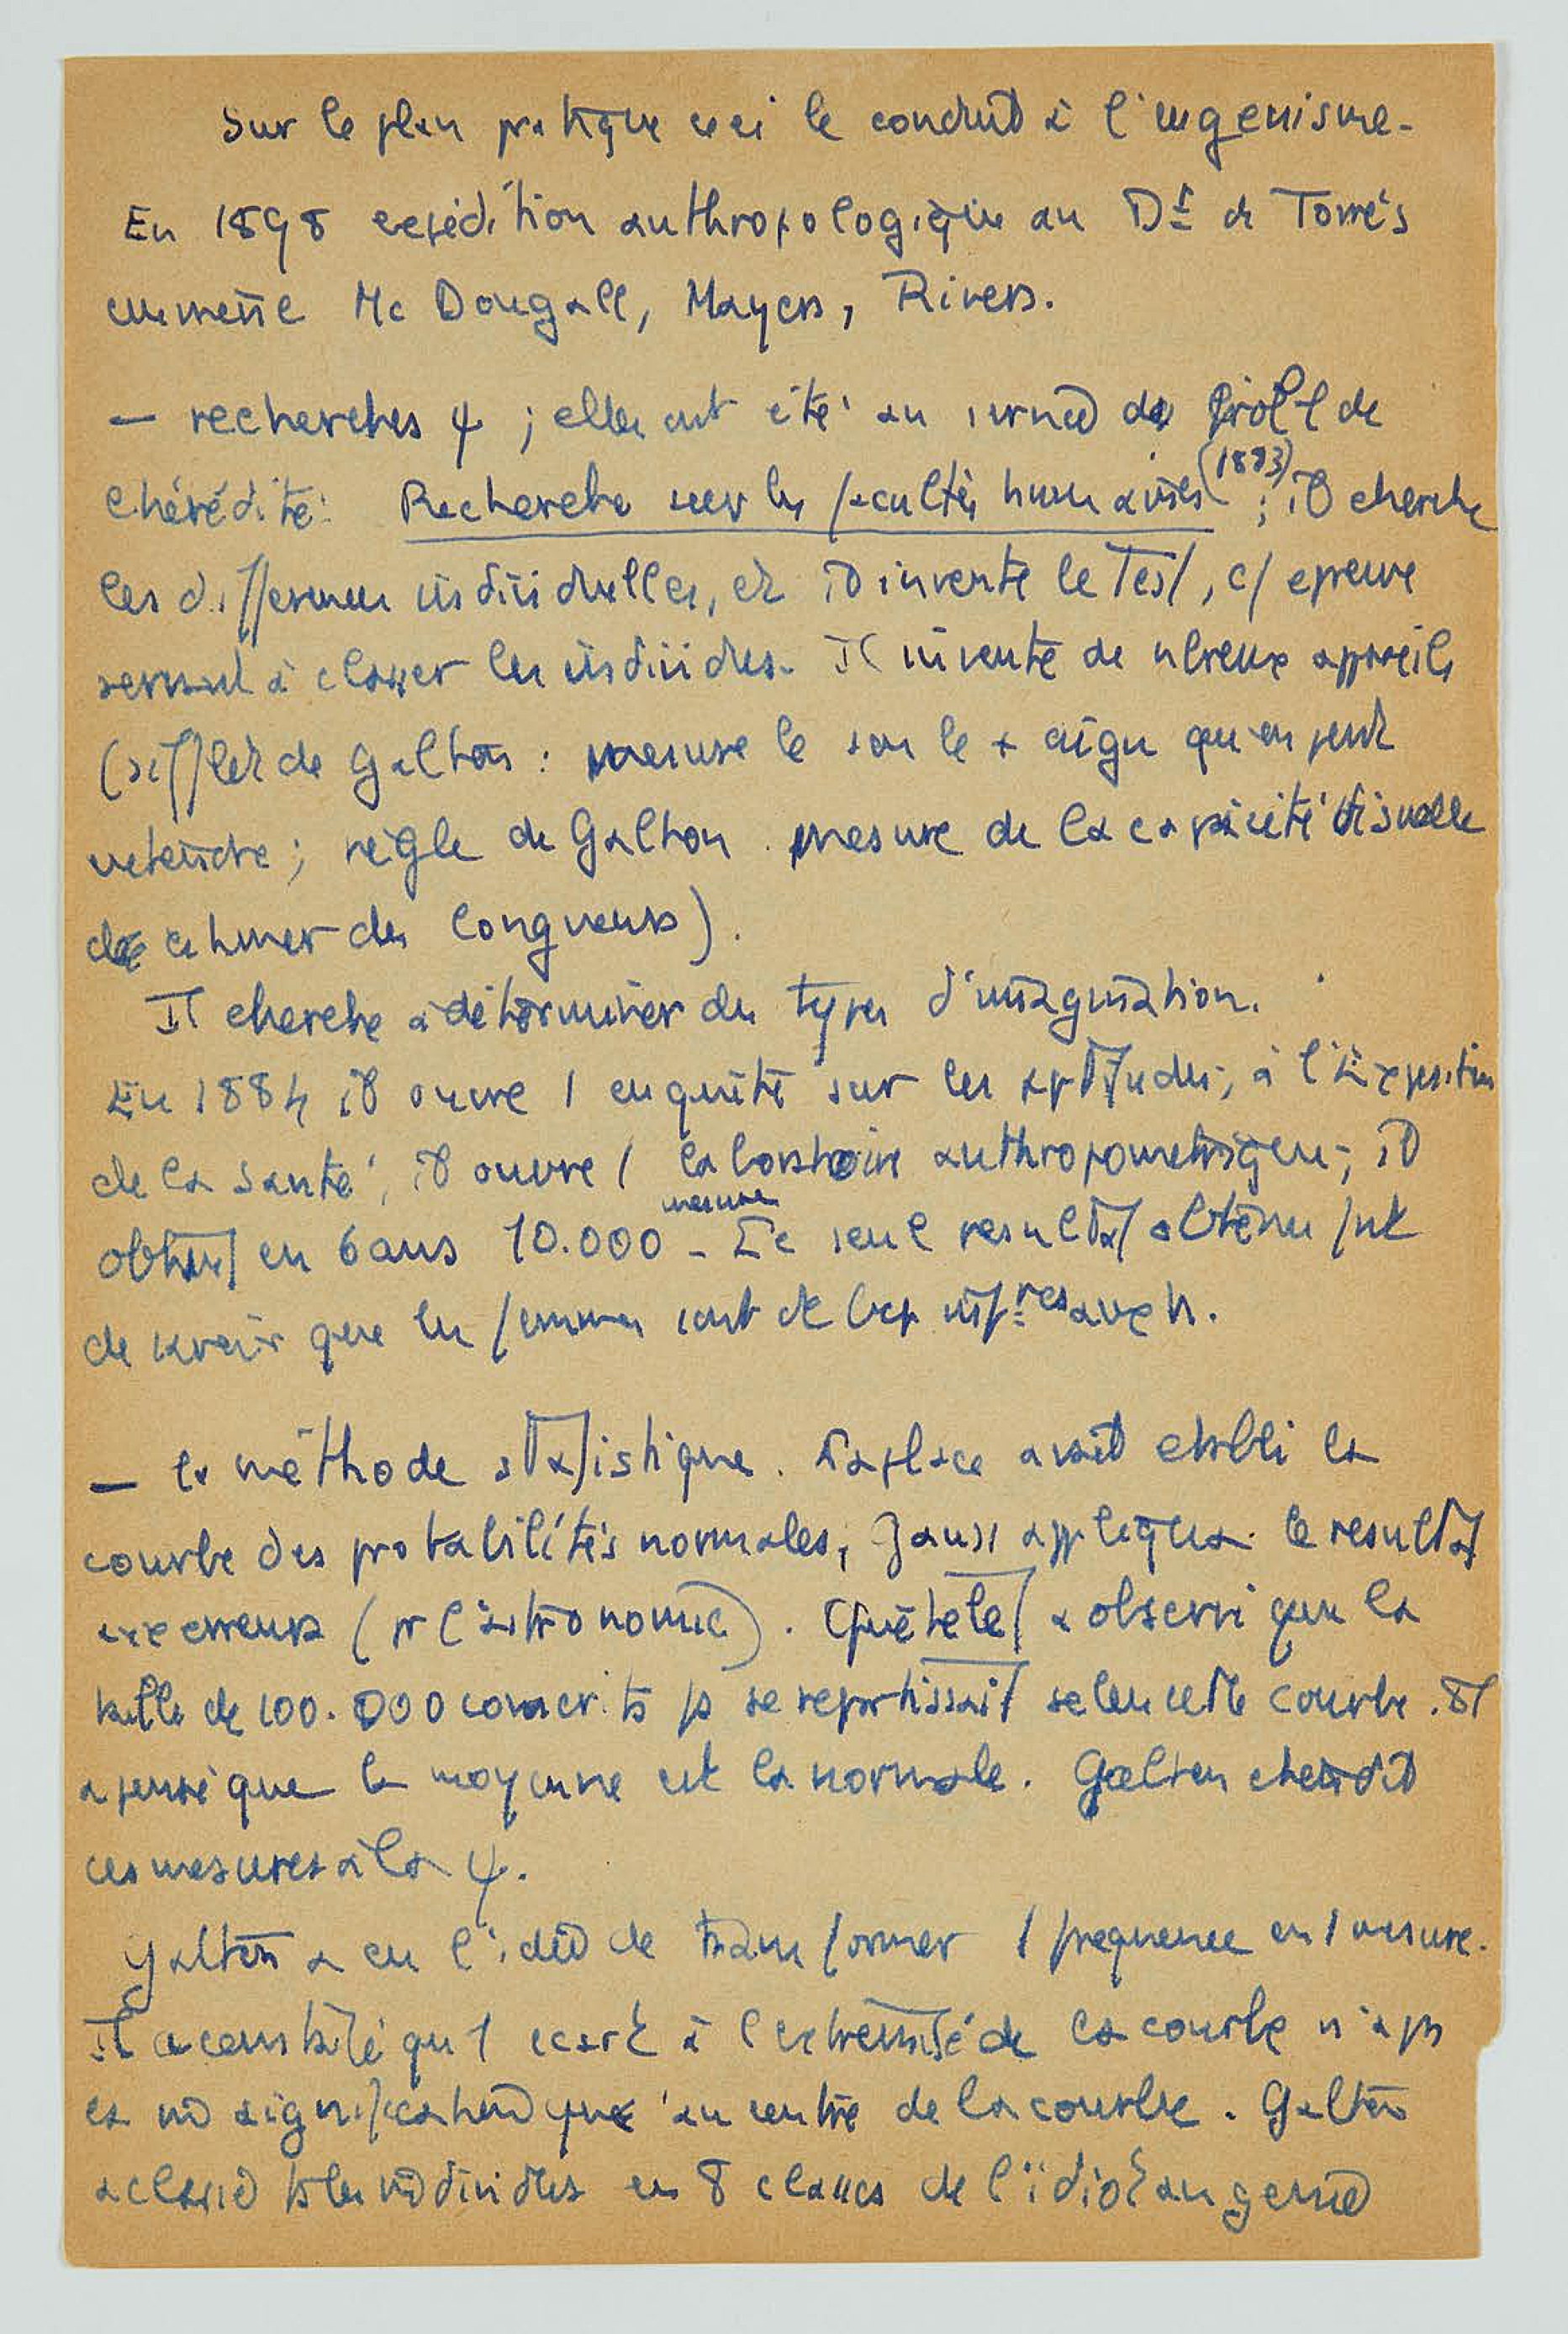 Sur le plan pratique ceci le conduit à l'eugenisme.
En 1898 expédition anthropologique au Dt de Torrès
emmène Mc Dougall, Mayers, Rivers.
— recherches ψ ; elles ont été au service du probl de
l'hérédité: Recherche sur les facultés humaines (1883) ; il cherche
les differences individuelles, et il invente le Test, c/ epreuve
servant à classer les individus. Il invente de nbreux appareils
(sifflet de Galton : mesure le son le + aigu qu'on peut
entendre ; règle de Galton mesure de la capacité visuelle
d'estimer des longueurs).
Il cherche à déterminer des types d'imagination.
En 1884 il ouvre 1 enquête sur les aptitudes; à l'Exposition
de la Santé, il ouvre 1 laboratoire anthropometrique; il
obtient en 6 ans 10.000 mesures - Le seul resultat obtenu fut
de savoir que les femmes sont de bcp infres aux h.
— la méthode statistique. Laplace avait etabli la
courbe des probabilités normales, Gauss appliqua le resultat
aux erreurs (pr l'astronomie). Quételet a observé que la
taille de 100.000 conscrits se repartissait selon cette courbe. Il
a pensé que la moyenne est la normale. Galton etendit
ces mesures à la ψ.
Galton a eu l'idée de transformer 1 frequence en 1 mesure.
Il a constaté qu'1 ecart à l'extremité de la courbe n'a ps
la m̂ signification qu'au centre de la courbe. Galton
a classé ts les individus en 8 classes de l'idiot au genie